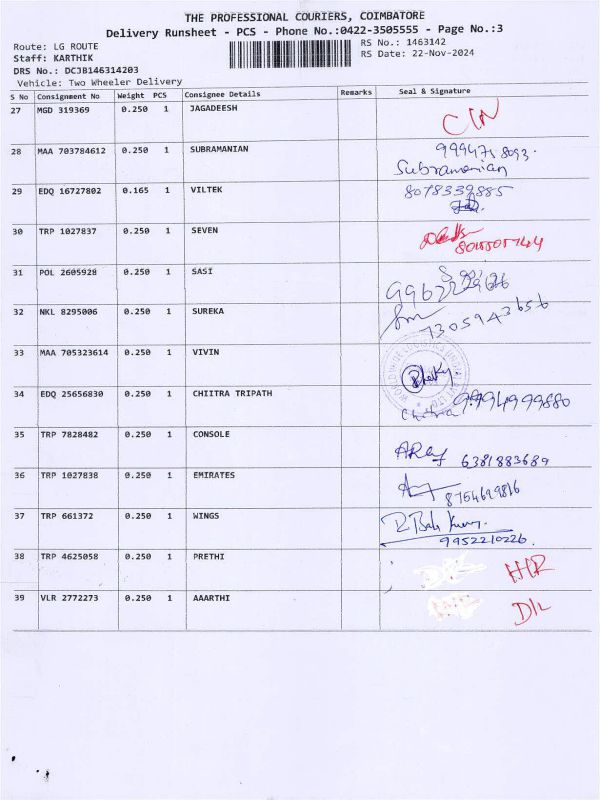 THE PROFESSIONAL COURIERS, COIMBATORE
Delivery Runsheet - PCS - Phone No.:0422-3505555 - Page No.:3
Route: LG ROUTE
RS No.: 1463142
Staff: KARTHIK
RS Date: 22-Nov-2024
DRS No.: DCJB146314203
Vehicle: Two Wheeler Delivery
S No Consignment No Weight PCS Consignee Details Remarks Seal & Signature
27 MGD 319369 0.250 1 JAGADEESH
28 MAA 703784612 0.250 1 SUBRAMANIAN
Subramanian
29 EDQ 16727802 0.165 1 VILTEK 8078339885
30 TRP 1027837 0.250 1 SEVEN
31 POL 2605928 0.250 1 SASI
32 NKL 8295006 0.250 1 SUREKA
7305943656
33 MAA 705323614 0.250 1 VIVIN
34 EDQ 25656830 0.250 1 CHIITRA TRIPATH
Chitra 9994999880
35 TRP 7828482 0.250 1 CONSOLE
6381883689
36 TRP 1027838 0.250 1 EMIRATES
8754629816
37 TRP 661372 0.250 1 WINGS
9952210226.
38 TRP 4625058 0.250 1 PRETHI
39 VLR 2772273 0.250 1 AAARTHI
D/L